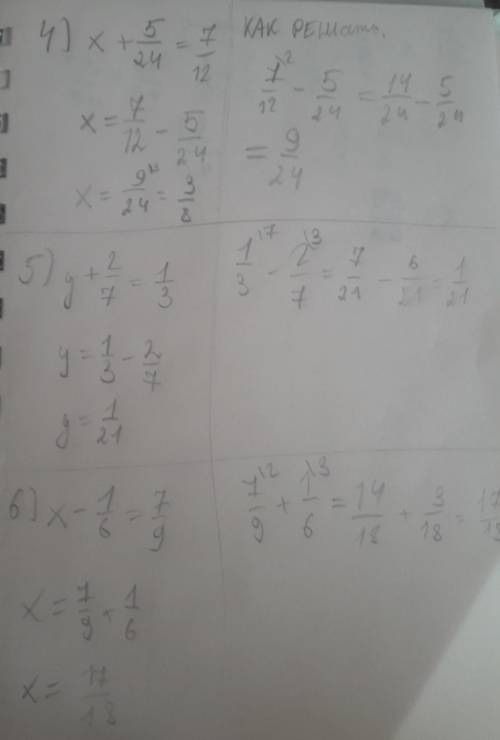 4) x + 5/24 = 7/12
КАК РЕШать.
x = 7/12 - 5/24
7\2/12 - 5/24 = 14/24 - 5/24
= 9/24
x = 9/24 = 3/8
5) y + 2/7 = 1/3
1\7/3 - 2\3/7 = 7/21 - 6/21 = 1/21
y = 1/3 - 2/7
y = 1/21
6) x - 1/6 = 7/9
7\2/9 + 1\3/6 = 14/18 + 3/18 = 17/18
x = 7/9 + 1/6
x = 17/18